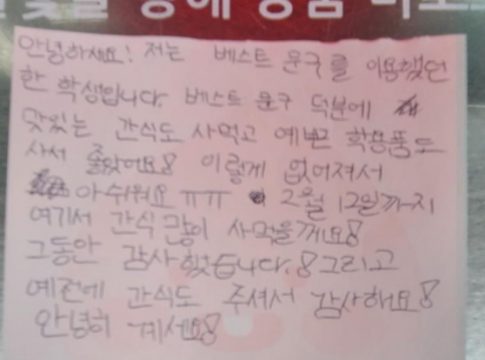 안녕하세요! 저는 베스트 문구를 이용했던
한 학생입니다. 베스트 문구 덕분에
맛있는 간식도 사먹고 예쁜 학용품도
사서 좋았어요! 이렇게 없어져서
아쉬워요 ㅠㅠ 2월 12일까지
여기서 간식 많이 사먹을께요!
그동안 감사했습니다.! 그리고
예전에 간식도 주셔서 감사해요!
안녕히 계세요!